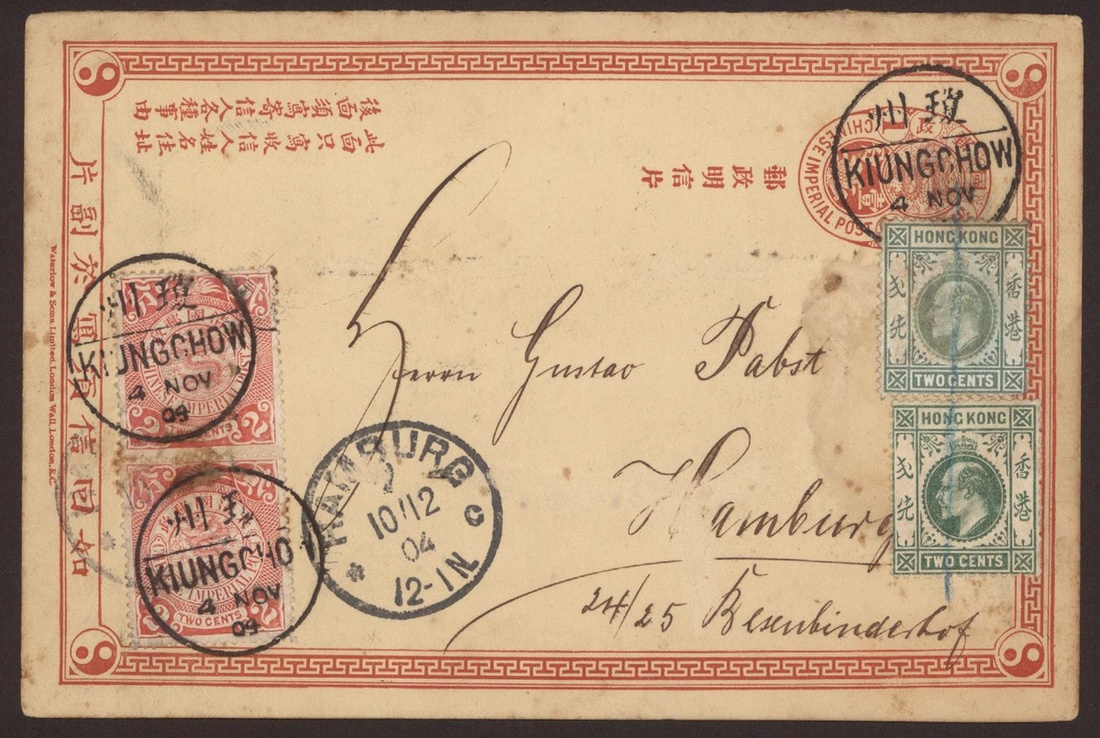 後面須寫寄信人各種事由
此面只寫收信人姓名住址
郵政明信片
CHINESE IMPERIAL POST
瓊州
KIUNGCHOW
4 NOV
HONG KONG
香港
TWO CENTS
HONG KONG
香港
TWO CENTS
瓊州
KIUNGCHOW
4 NOV
04
CHINESE IMPERIAL POST
TWO CENTS
瓊州
KIUNGCHOW
4 NOV
04
TWO CENTS
HAMBURG
10/12
04
12-1N
* C
Herrn Gustav Pabst
Hamburg
24/25 Besenbinderhof
Waterlow & Sons Limited, London Wall, London, E.C.